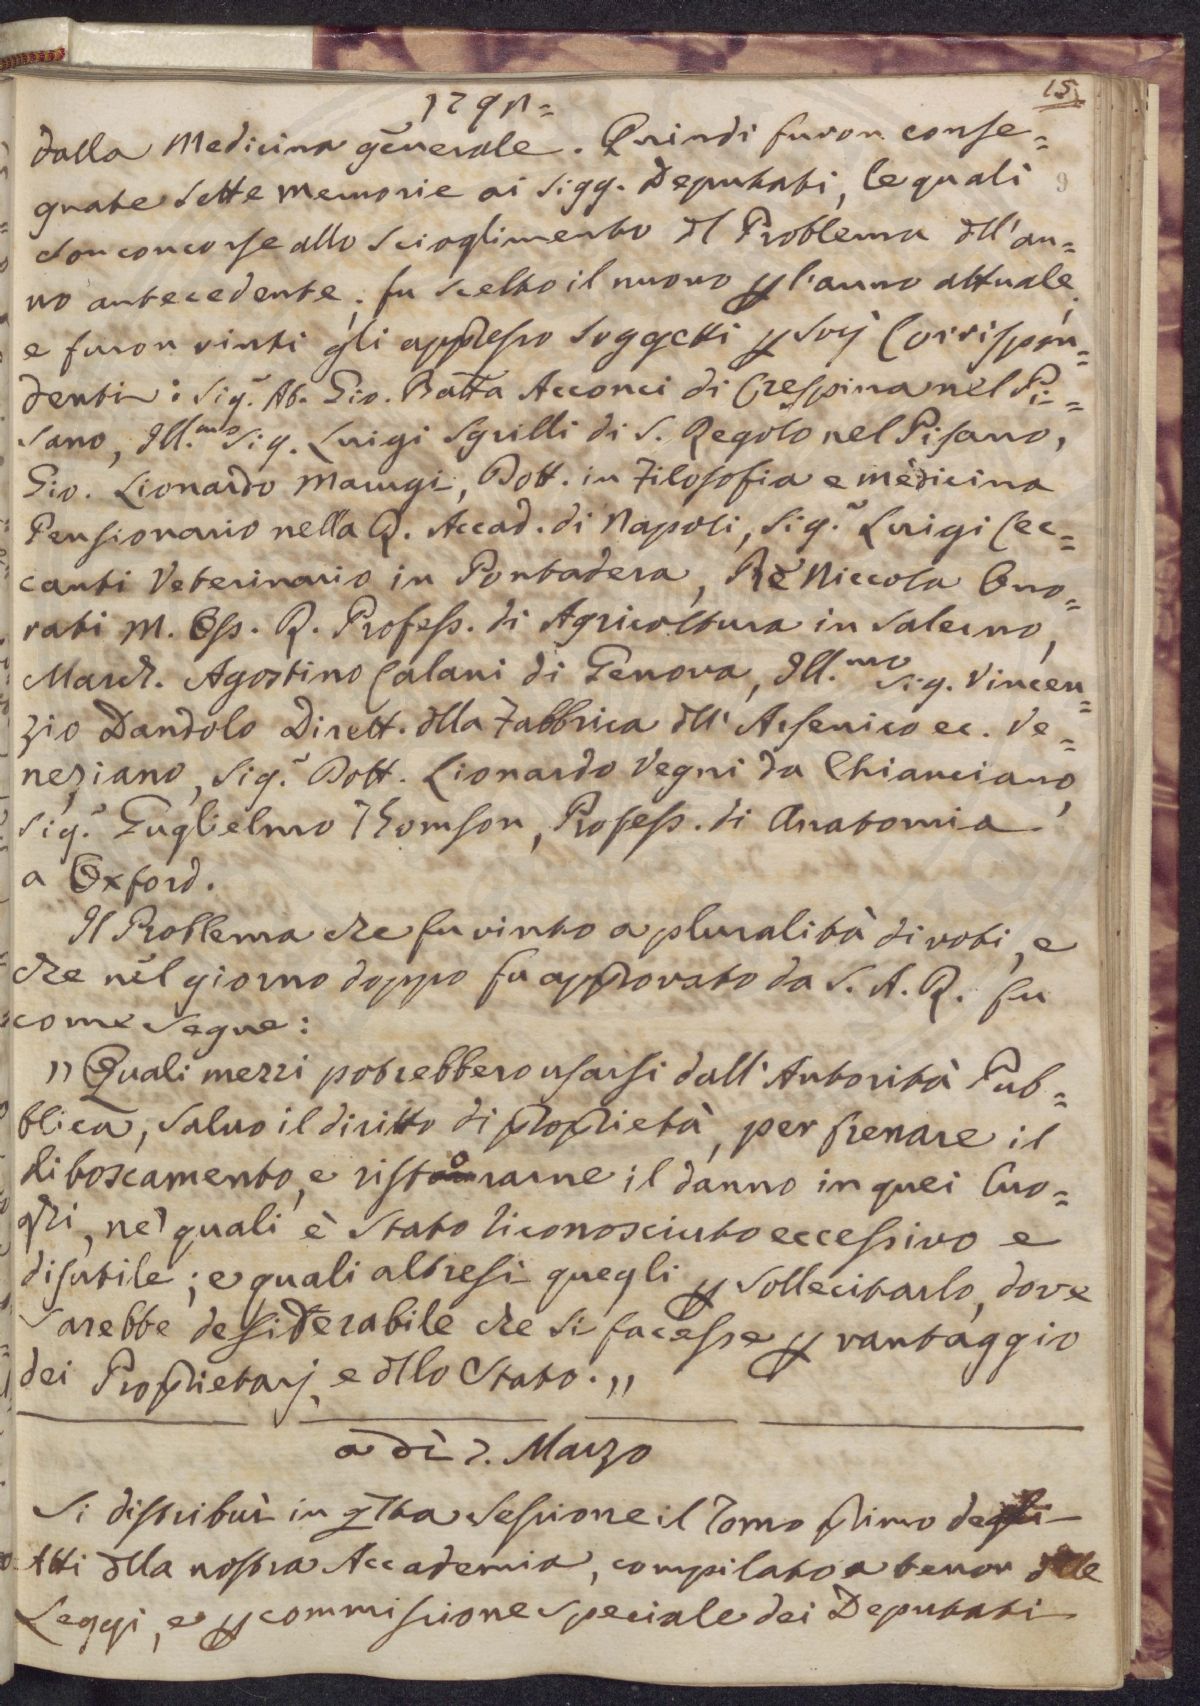 1791=
15
dalla Medicina generale. Quindi furon conse=
gnate sette memorie ai Sigg. Deputati, le quali
9
son concorse allo scioglimento dl Problema dll'an=
no antecedente, fu scelto il nuovo p l'anno attuale,
e furon vinti gli appresso soggetti p socj Corrispon=
denti: Sig.r Ab. Gio. Batta Acconci di Crespina nel Pi=
sano, Ill.mo Sig. Luigi Sgrilli di S. Regolo nel Pisano,
Gio. Lionardo Marugi, Dott. in Filosofia e medicina
Pensionario nella R. Accad. di Napoli, Sig.r Luigi Cec=
canti Veterinario in Pontadera, Pre Niccola Ono=
rati M. Oss. R. Profess. di Agricoltura in Salerno,
March. Agostino Calani di Genova, Ill.mo Sig. Vincen=
zio Dandolo Dirett. dlla Fabbrica dll' Arsenico ec. Ve=
neziano, Sig.r Dott. Lionardo Vegni da Chianciano,
Sig.r Guglielmo Thomson, Profess. di Anatomia
a Oxford.
Il Problema che fu vinto a pluralità di voti, e
che nel giorno doppo fu approvato da S. A. R. fu
come segue:
„ Quali mezzi potrebbero usarsi dall' Autorità Pub=
blica, salvo il diritto di proprietà, per frenare il
diboscamento, e ristorarne il danno in quei Luo=
ghi, ne' quali è stato riconosciuto eccessivo e
disutile; e quali altresi quegli p sollecitarlo, dove
sarebbe desiderabile che si facesse p vantaggio
dei Proprietarj, e dllo Stato. „
a dì 2. Marzo
Si distribuì in qta Sessione il Tomo primo degli
Atti dlla nostra Accademia, compilato a tenor dlle
Leggi, e p commissione speciale dei Deputati